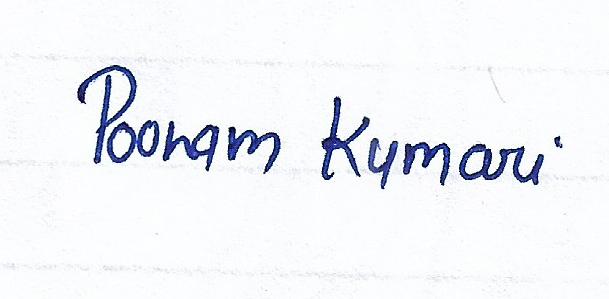 Poonam Kumari